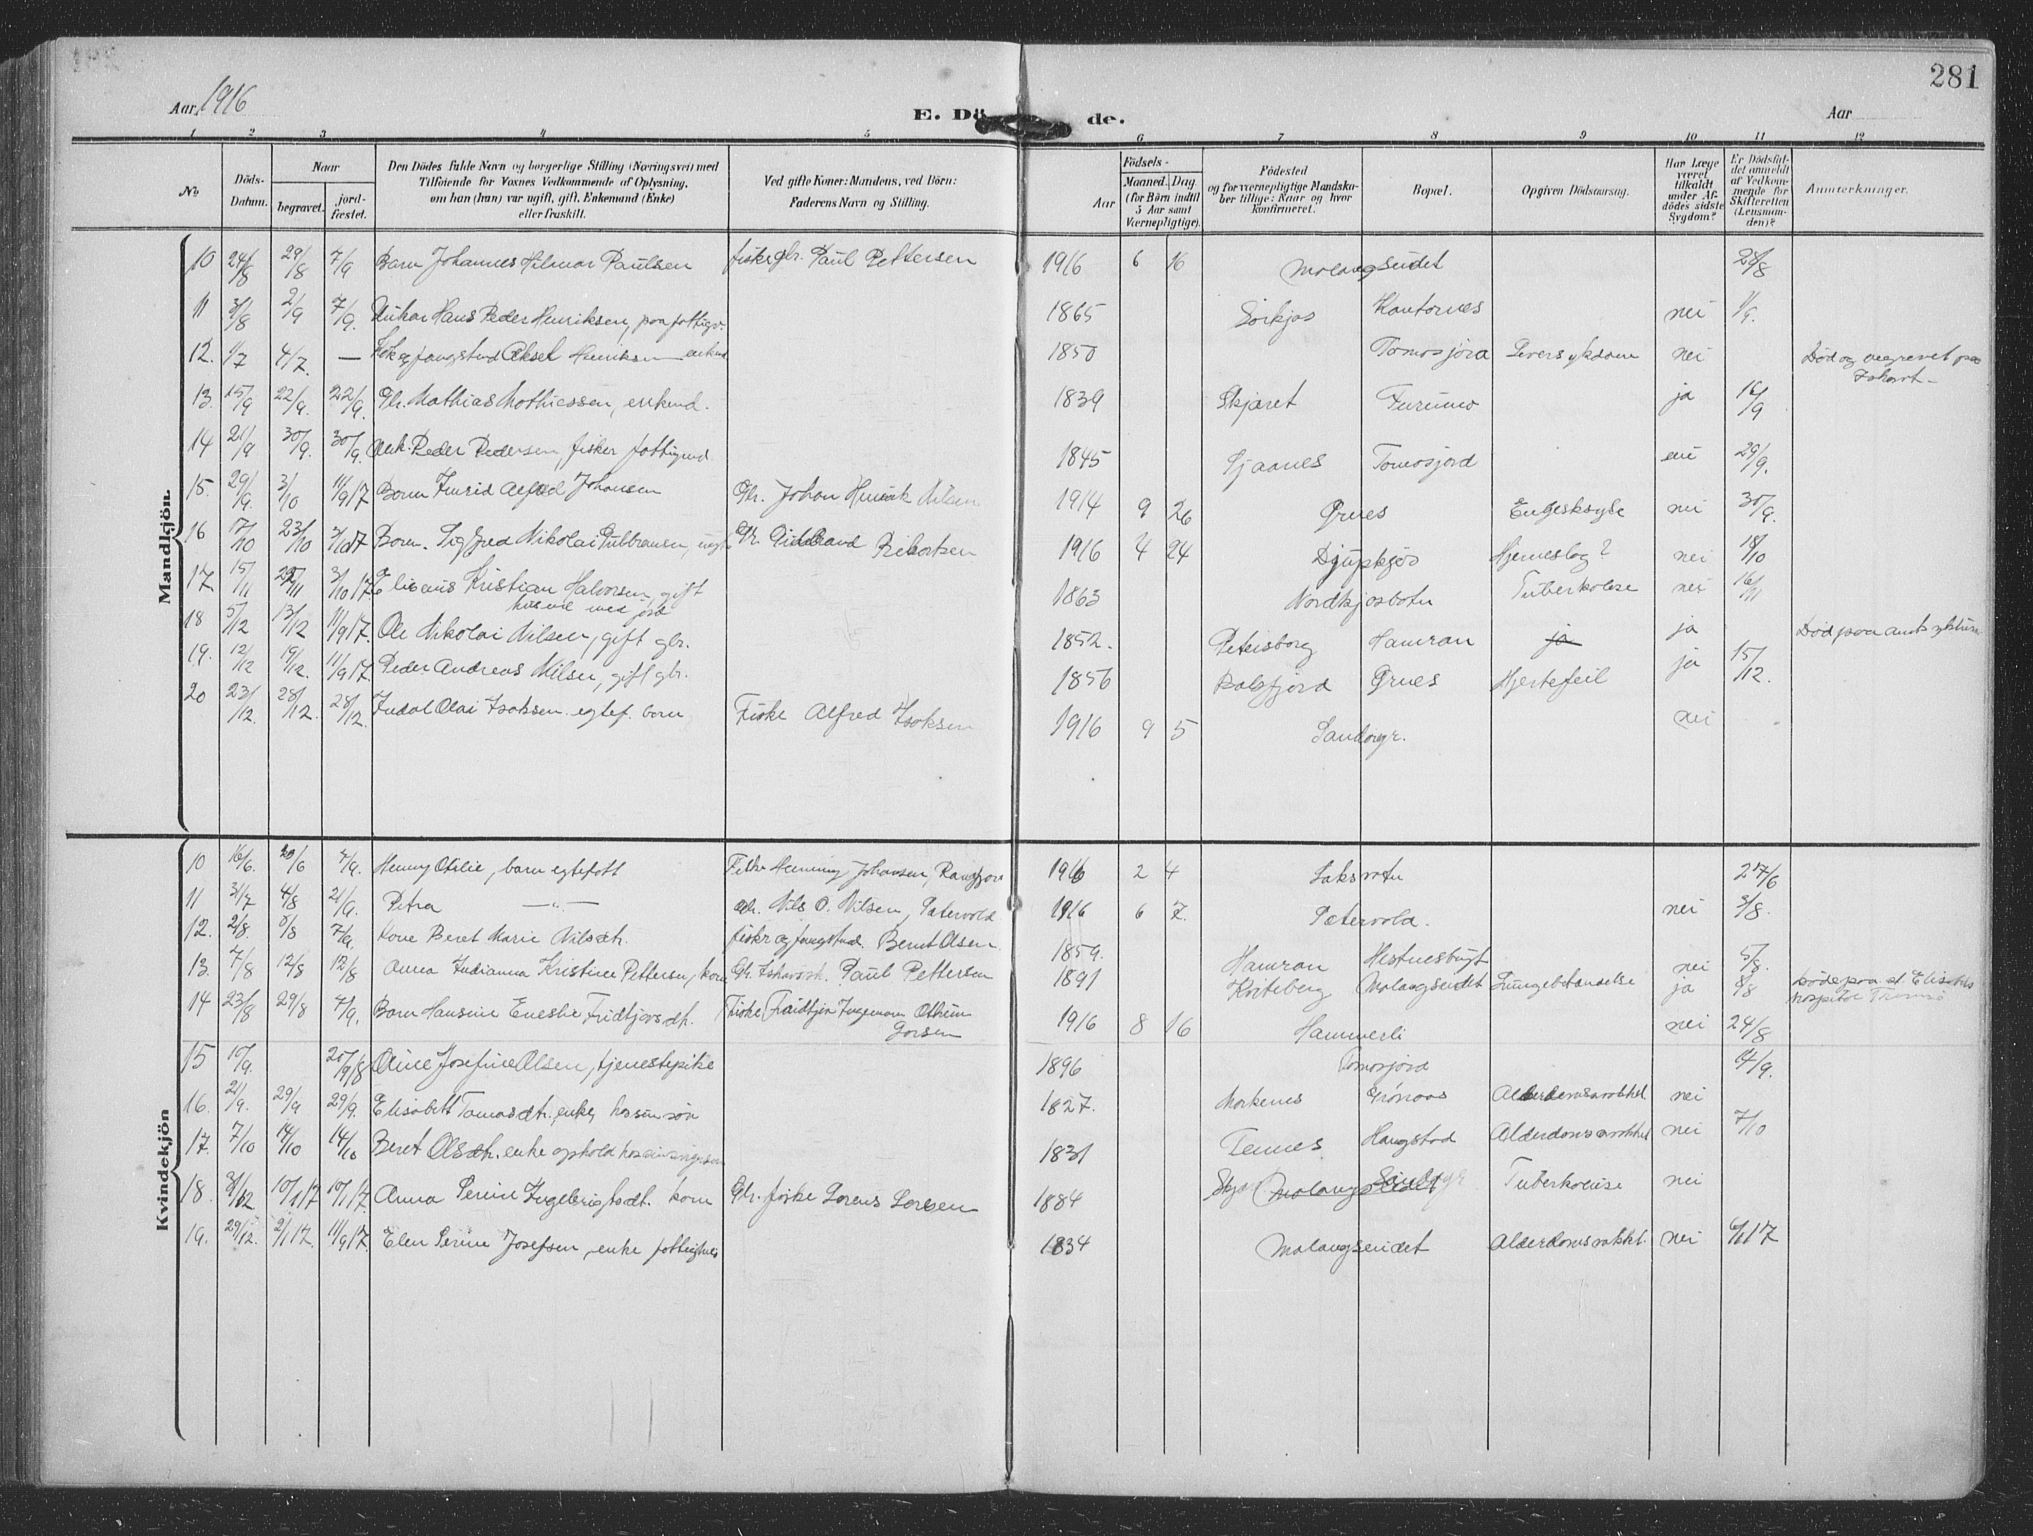 281
Aar 1916 E. Dö de. Aar
1 2 3 4 5 6 7 8 9 10 11 12
No
Döds-Datum.
Naar
begravet.
jord-fæstet.
Den Dödes fulde Navn og borgerlige Stilling (Næringsvei) med
Tilföiende for Voxnes Vedkommende af Oplysning,
om han (hun) var ugift, gift, Enkemand (Enke)
eller fraskilt.
Ved gifte Koner: Mandens, ved Börn:
Faderens Navn og Stilling.
Födsels-
Aar
Maaned. Dag
(for Börn indtil
5 Aar samt
Værnepligtige).
Födested
og for værnepligtige Mandska-
ber tillige: Naar og hvor
konfirmeret.
Bopæl.
Opgiven Dödsaarsag.
Har Læge
været
tilkaldt
under Af-
dödes sidste
Sygdom?
Er Dödsfal-
det anmeldt
af Vedkom-
mende for
Skifteretten
(Lensman-
den)?
Anmærkninger.
Mandkjön.
10 24/8 29/8 7/9 Barn Johannes Hilmar Paulsen fisker gbr. Paul Pettersen 1916 6 16 Malangseidet 28/8
11 31/8 2/9 7/9. Hans Peder Henriksen, paa fattigv. 1865 Sörkjos Kantornes nei 1/9.
12. 1/7 4/7. — Aksel Henriksen enkem 1850 Tomosjord Leversykdom nei Död og begravet paa
Ishavet
13. 15/9 22/9. 22/9. Gbr. Mathias Mathiessen, enkemd. 1839 Skjæret Furumo ja 16/9
14 21/9 30/9. 30/9. Peder Pedersen, fisker fattigund. 1845 Sjaanes Tomosjord nei 29/9.
15. 29/9. 3/10 11/9 17 Barn Alfred Johansen Gbr. Johan Henrik Nilsen 1914 9 26 Grues Engelsksyke nei 30/9.
16 17/10 23/10 3/10 17 Barn. Sigfred Nikolai Gulbransen, Gbr. Ribertsen 1916 4 24 Djupkjos Hjerneslag? nei 18/10
17. 15/11 3/10 17 Elisæus Kristian Halvorsen gift
husmd med jord 1863 Nordkjosbotn Tuberkolose nei 16/11
18 5/12 13/12 11/9 17. Ole Nikolai Nilsen, gift gbr. 1852. Petersborg Hamran ja ja Död paa amts sykehus
19. 12/12 19/12. 11/9 17 Peder Andreas Nilsen, gift gbr. 1856 Balsfjord Grues Hjertefeil ja 15/12.
20 23/12. 28/12. 28/12. Indal Olai Isaksen egtef. barn Fiske Alfred Isaksen 1916 9 5 Sandöyr. nei
Kvindekjön
10 16/6. 20/6 7/9. Henny Otilie, barn egtefödt Fisker Henning Johansen, 1916 2 4 Laksvatn 27/6
11 31/7 4/8 21/9. Petra —"— Gbr. Nils O. Nilsen, Sætervold 1916 6 7. Sætervold. nei 3/8.
12. 2/8. 8/8 7/9. Kone Beret Marie Nilsdtr. fisker og fangstmd. Bernt Olsen 1859. Hamran Hestnesbugt nei 5/8.
13. 7/8 12/8 12/8 Anna Indianna Kristine Pettersen, kone Gbr. Ishavssk. Paul Pettersen 1891 Kviteberg Malangseidet Lungebetændelse ja 8/8 Döde paa st. Elisabeths
hospital Tromsö
14 23/8 29/8 7/9. Barn Hansine Eneste Fridtjovsdtr. Fiske Fridtjov Ingemann Othum
Larsen 1916 8 16 Hammerli nei 24/8
15 10/9. 20/9 18 Oline Josefine Olsen, tjenestepike 1896 Tomosjord 14/9.
16. 21/9. 29/9 29/9. Elisabeth Tomasdtr. enke, hos sin sön 1827. Markenes Grönaas Alderdomssvakhet nei
17. 7/10 14/10 14/10 Beret Olsdtr. enke ophold hos 1831 Tennes Haugstad Alderdomssvakhet nei 7/10
18. 31/12 10/1 17 10/1 17. Anna Serine Ingebrigtsdt. kone Gbr. fiske Lorens Larsen 1884 Malangseidet Tuberkolose nei
19. 29/12. 2/1 17. 11/9 17. Elen Serine Josefsen, enke fattighus 1834 Malangseidet Alderdomssvakhet. nei 6/1 17